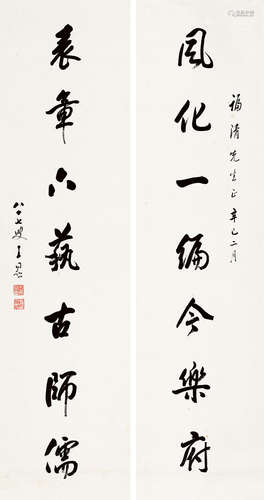 福清先生正 辛巳二月
風化一編今樂府
表章六藝古師儒
八十七叟王